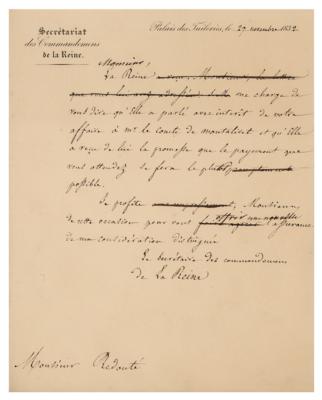 Secrétariat
des Commandemens
de la Reine.
Palais des Tuileries, le 29 novembre 1832.
Monsieur,
La Reine a reçu, Monsieur, la lettre
que vous lui avez adressée, et elle me charge de
vous dire qu'Elle a parlé avec intérêt de votre
affaire à Mr. le Comte de montalivet et qu'Elle
a reçu de lui la promesse que le payement que
vous attendez se fera le plus promptement
possible.
Je profite avec empressement, Monsieur,
de cette occasion pour vous offrir une nouvelle assurance
de ma considération distinguée
Le Secrétaire des commandemens
de La Reine
Monsieur Redouté.